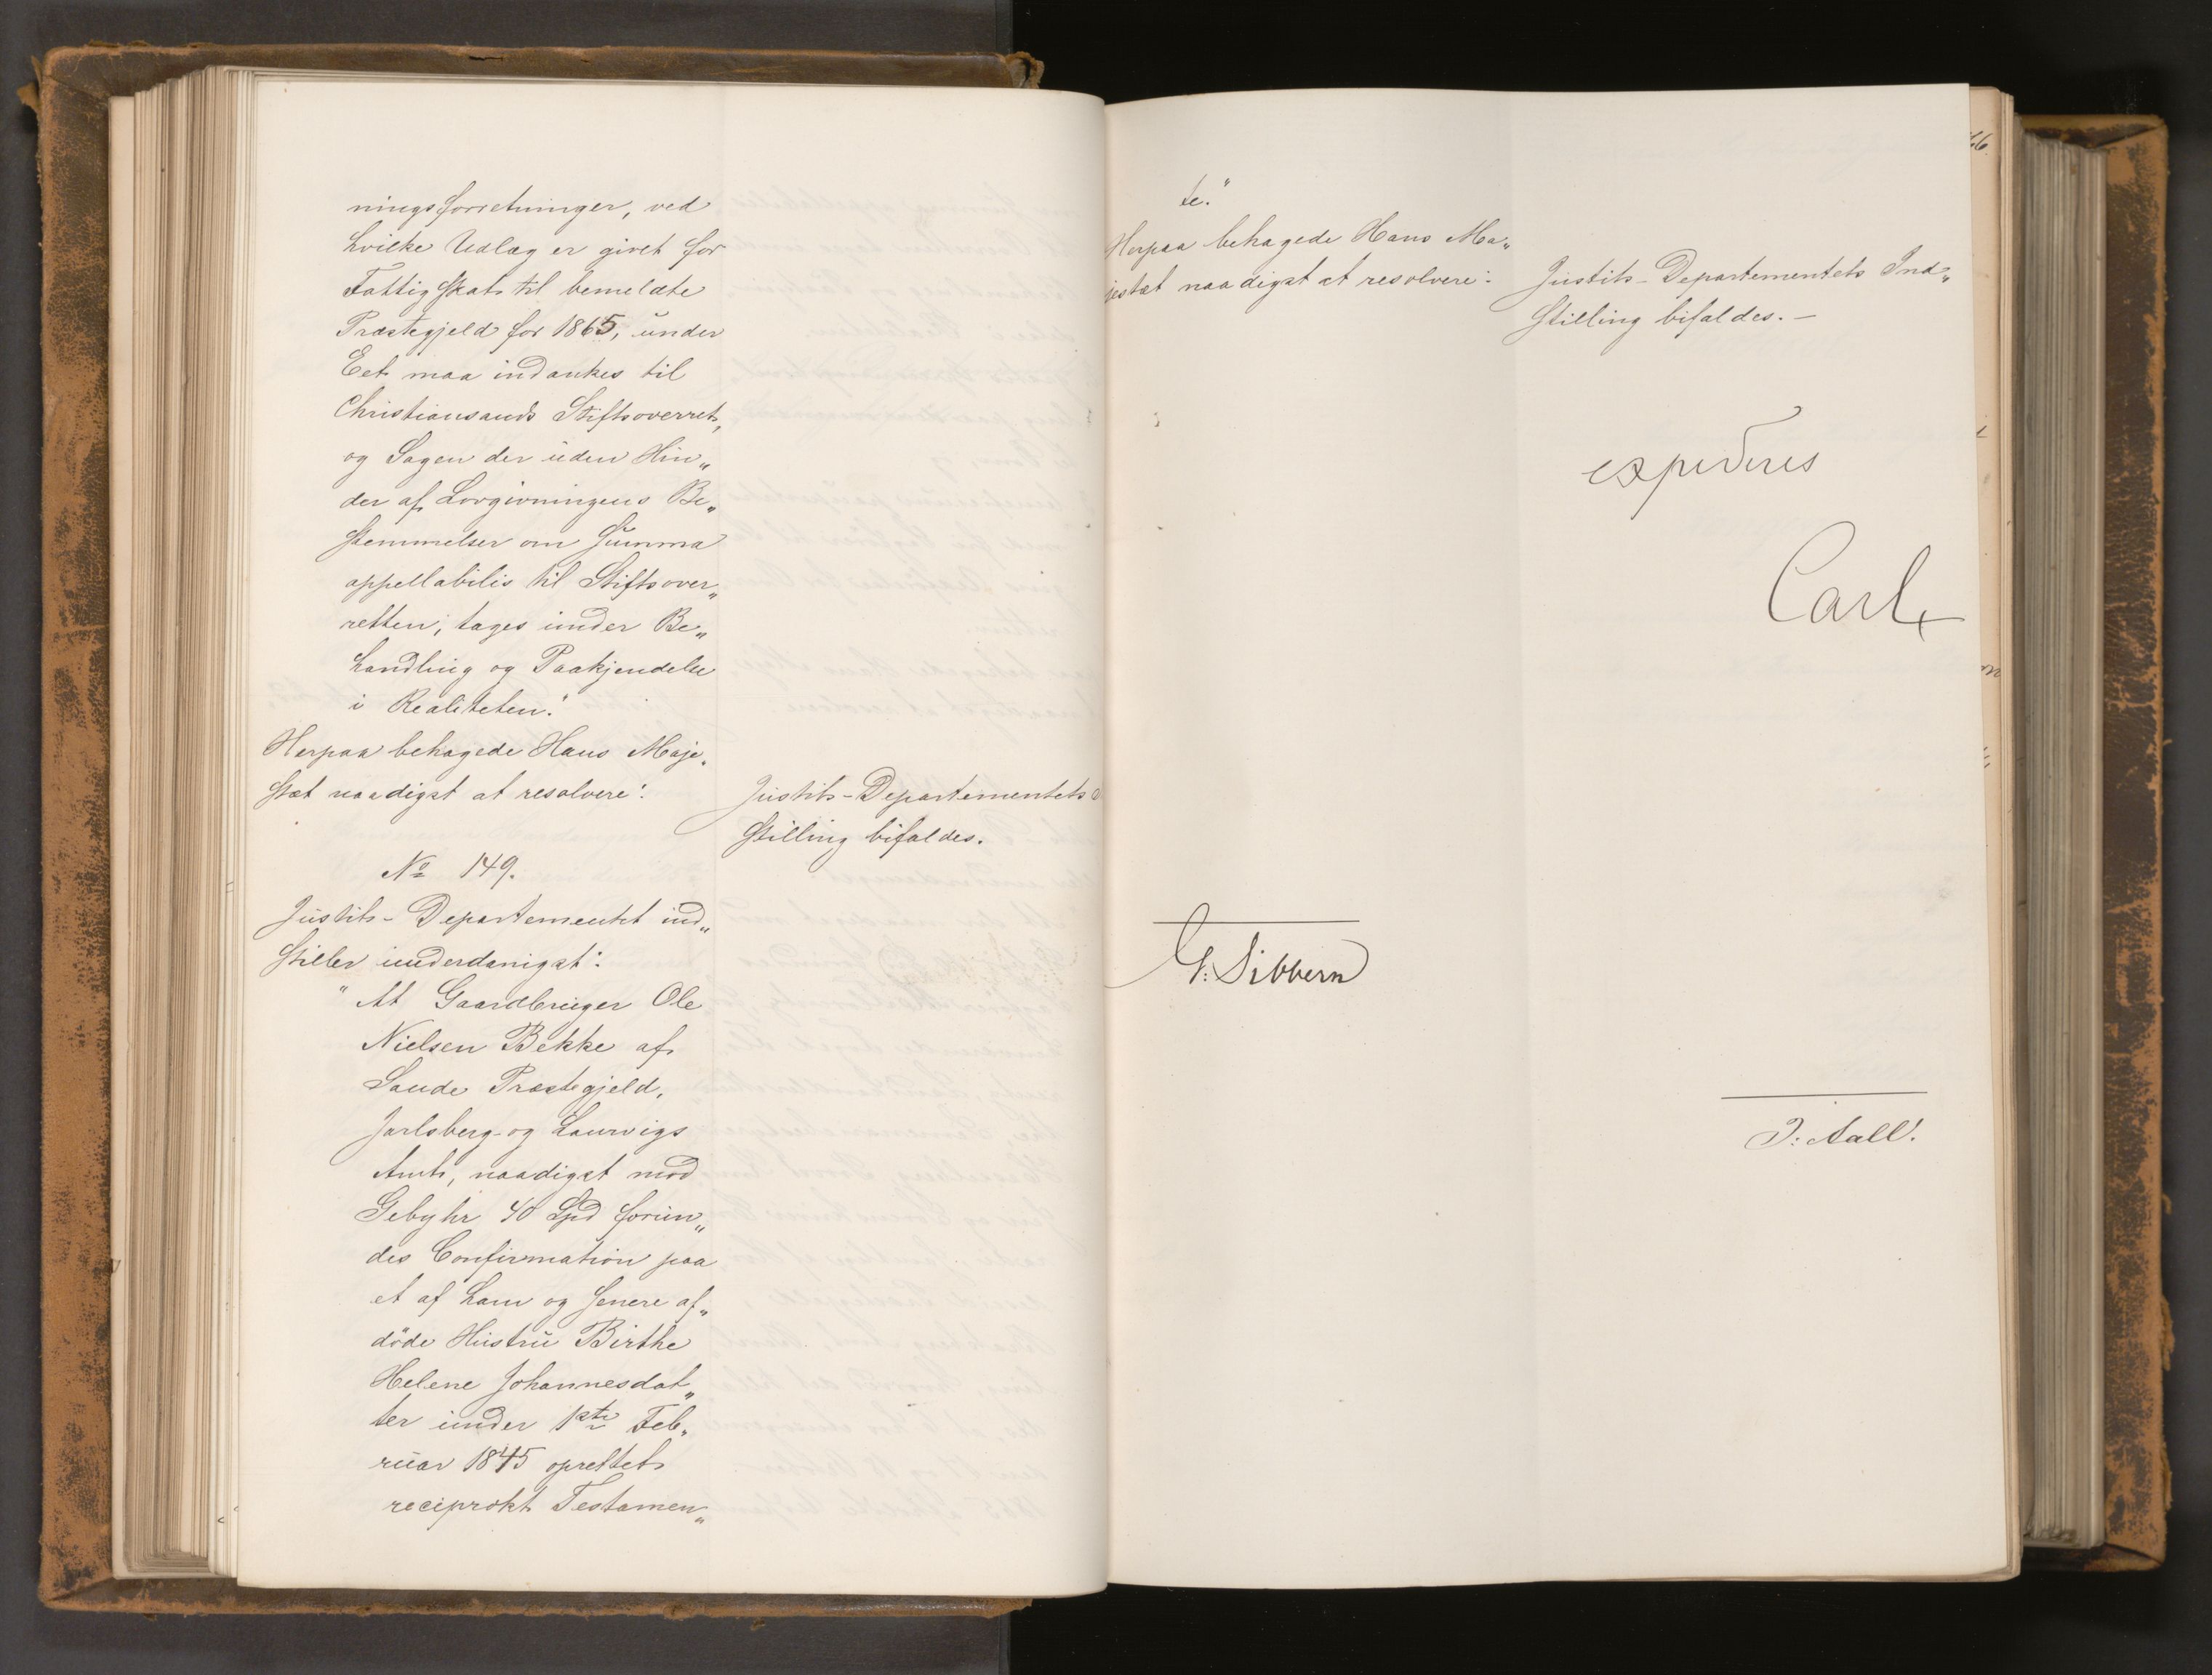 ningsforretninger, ved
hvilke Udlæg er givet for
Fattigskat til bemeldte
Præstegjeld for 1865, under
Eet maa indankes til
Christiansands Stiftsoverret,
og Sagen der uden Hin„
der af Lovgivningens Be„
stemmelser om Summa
appellabilis til Stiftsover„
retten, tages under Be„
handling og Paakjendelse
i Realiteten."
Herpaa behagede Hans Maje„
stæt naadigst at resolvere:
Justits-Departementets
stilling bifaldes.
No 149.
Justits-Departementet ind„
stiller underdanigst:
"At Gaardbruger Ole
Nielsen Bekke af
Sande Præstegjeld,
Jarlsberg og Laurvigs
Amt, naadigst mod
Gebyhr 40 Spd forun„
des Confirmation paa
et af ham og senere af„
döde Hustru Birthe
Helene Johannesdat„
ter under 1ste Feb„
ruar 1845 oprettet
reciprokt Testamen„
te."
Herpaa behagede Hans Ma„
jestæt naadigst at resolvere:
Justits-Departementets Ind„
stilling bifaldes. —
expederes
Carl
G: Sibbern
J: Aall.